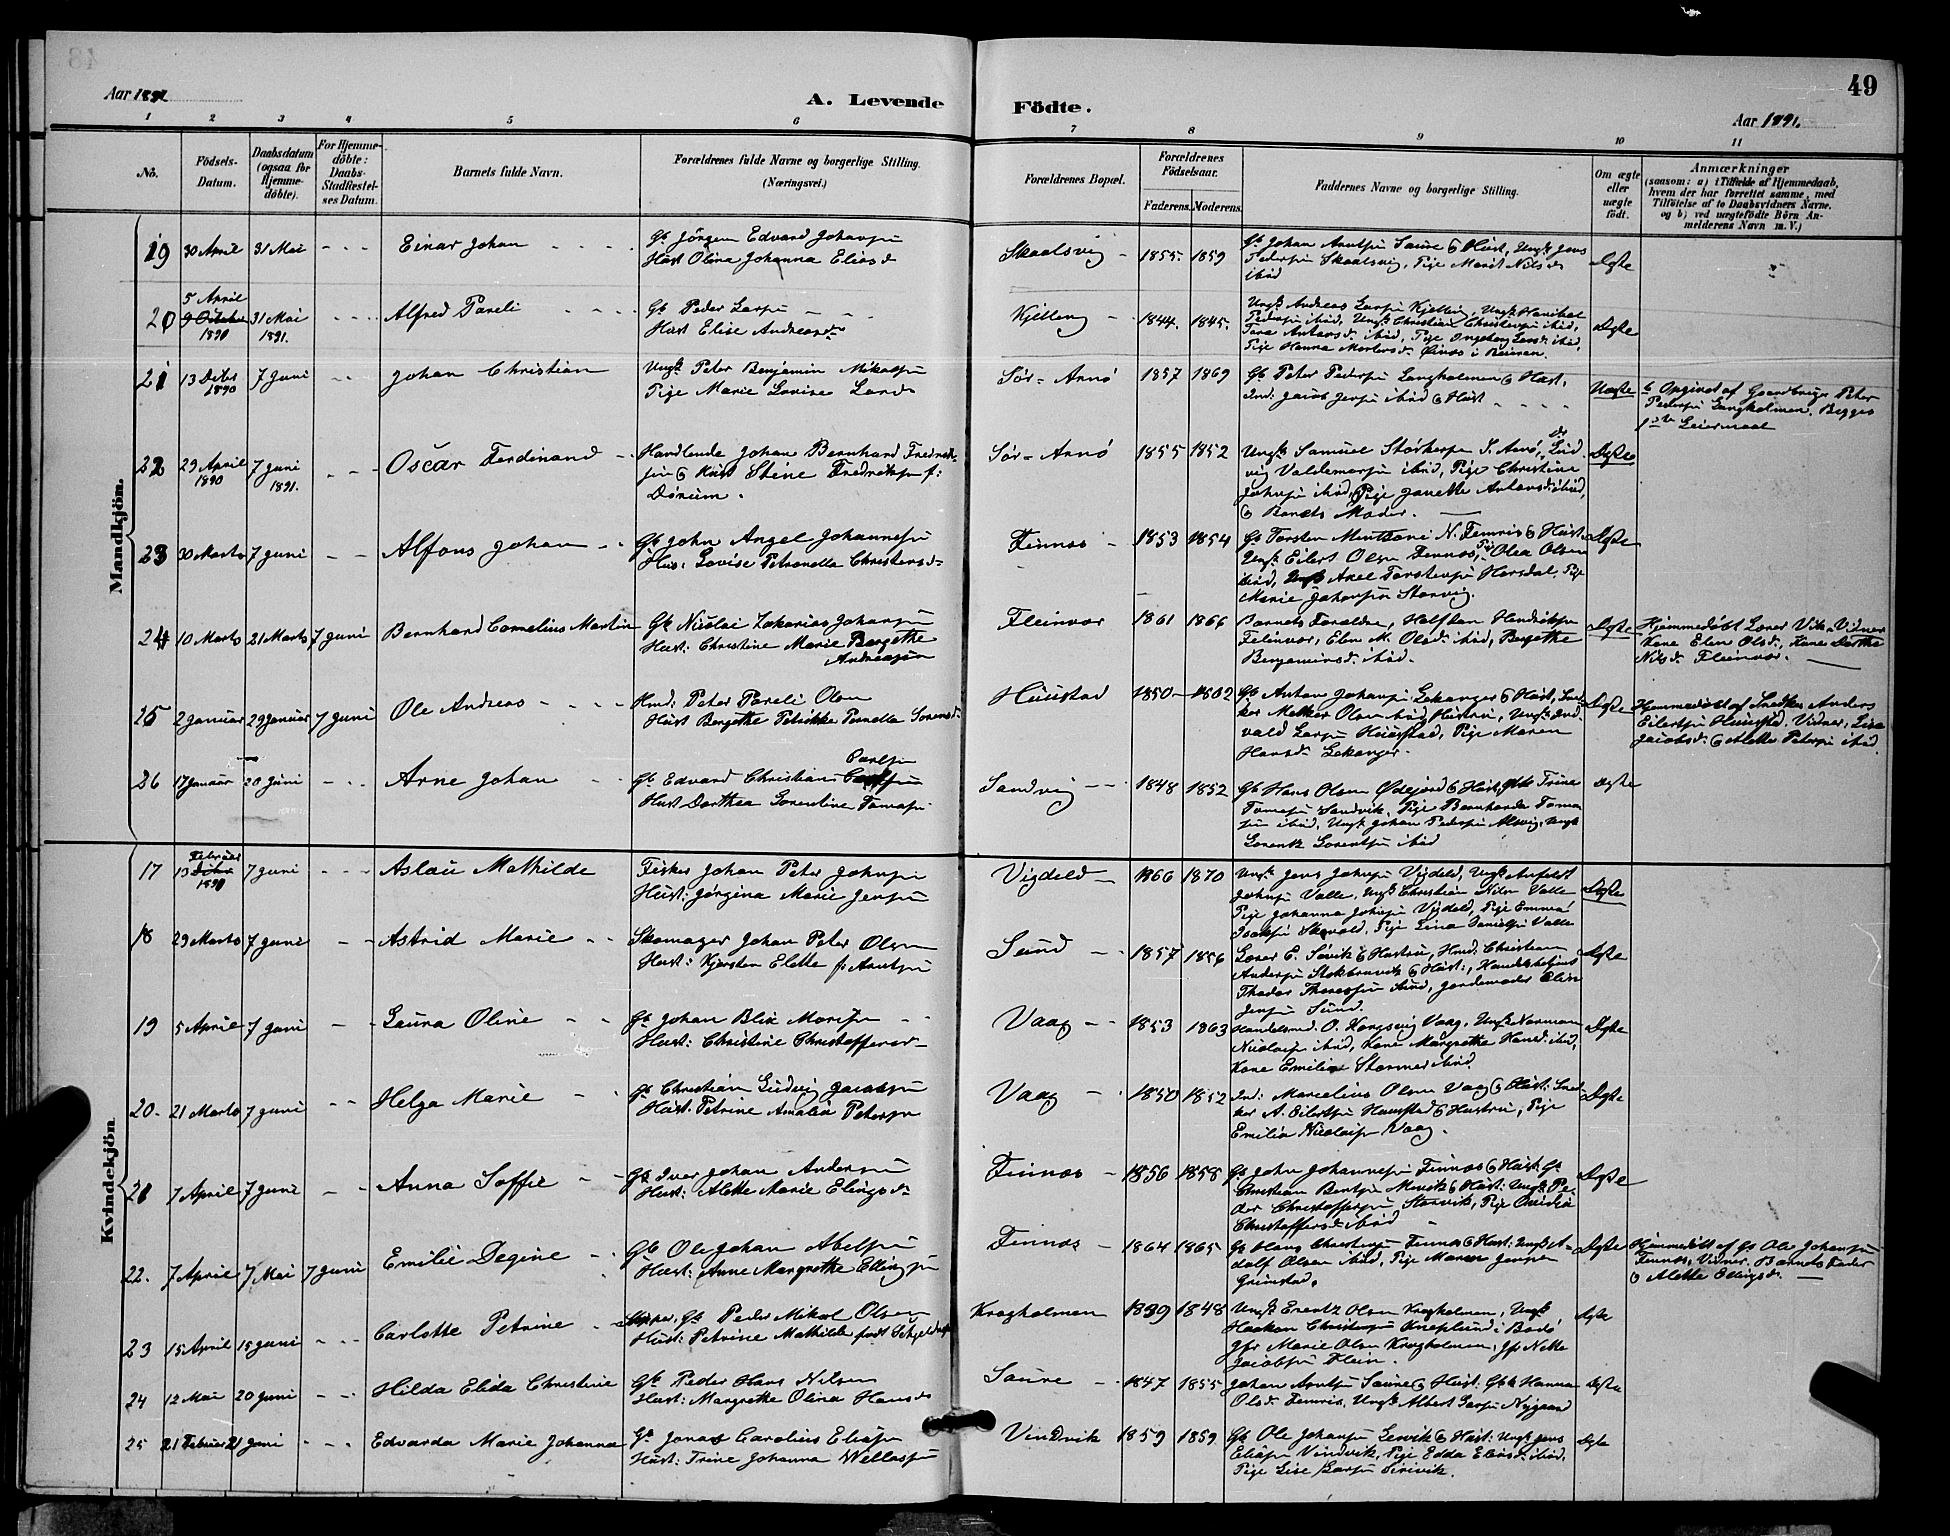 49
Aar 1891.
A. Levende Födte.
Aar 1891.
1 2 3 4 5 6 7 8 9 10 11
No.
Födsels-Datum.
Daabsdatum (ogsaa for Hjemme-döbte).
For Hjemme-döbte: Daabs-Stadfæstel-ses Datum.
Barnets fulde Navn.
Forældrenes fulde Navne og borgerlige Stilling. (Næringsvei.)
Forældrenes Bopæl.
Forældrenes Födselsaar.
Faderens. Moderens.
Faddernes Navne og borgerlige Stilling.
Om ægte eller uægte födt.
Anmærkninger
(saasom: a) i Tilfælde af Hjemmedaab, hvem der har forrettet samme, med Tilföielse af to Daabsvidners Navne, og b) ved uægtefödte Börn An-melderens Navn m. V.)
Mandkjön.
19 30 April 31 Mai - - - Einar Johan
Gb Jörgen Edvard Johansen
Hust Olina Johanna Eliasd
Skaalsvig - 1855. 1859
Gb Johan Arntsen Saura & Hust, Ungk Jens
Pedersen Skaalsvig, Pige Marit Nilsd
ibid
Ægte
20 5 April 1890 31 Mai 1891. Alfred Pareli
Gb Peder Larsen
Hust Elise Andreasd
Kjelling - 1844. 1845.
Ungk Andreas Larsen Kjelling, Ungk Hanibal
Pedersen ibid, Ungk Christian Christensen ibid,
Pige Hanna Mortensd
Ægte
21 13 Octbr 1890 7 Juni - - Johan Christian
Ungk Peter Benjamin Mikalsen
Pige Marie Lovise Larsd
Sör-Arnö 1857 1869
Gb Peter Pedersen Langholmen & Hust,
Ind: Jacob Jensen ibid & Hust
Uægte
Opgivet af Gaardbruger Peter
Pedersen Langholmen. Begges
1ste Leiermaal
22 29 April 1890 7 Juni 1891. - - Oscar Ferdinand -
Handlende Johan Bernhard Fredrik-
sen & Hust Stine Fredriksen f:
Dörum.
Sör-Arnö 1855 1852
Ungk Samuel Störkersen S. Arnö, Lud-
vig Valdemarsen ibid, Pige Christine
Johnsen ibid, Pige Janette Antonsd ibid,
& Barnets Moder.
Ægte
23 30 Marts 7 Juni - - Alfons Johan
Gb John Angel Johannesen
Hus: Lovise Petronella Christensd
Finnæs - 1853 1854
Gb Torsten Mentzoni N. Femris & Hust
Ungk Eilert Olsen Finnæs, Pig Olea Olsen
ibid, Ungk Axel Torstensen Horsdal, Pige
Marie Johansen Storvig.
Ægte
24 10 Marts 21 Marts 7 Juni Bernhard Cornelius Martin
Gb Nicolai Zakarias Johansen
Hust: Christine Marie Bergethe
Andreasen
Fleinvær 1861 1866
Barnets Forældre, Halfdan Hendriksen
Fleinvær, Elen M. Olsd ibid, Bergithe
Benjaminsd. ibid.
Ægte
Hjemmedöbt Lærer Vik. Vidner
Kone Elen Olsd, Kone Dorthe
Nilsd Fleinvær.
25 2 Januar 29 Januar 7 Juni Ole Andreas
Hmd: Peter Pareli Olsen
Hust Bergethe Petrikke Pernella Sörensd.
Hüustad 1850 - 1802
Gb Anton Johansen Lekanger & Hust, Sned-
ker Melker Olsen ibid Hustru, Ungk Ind-
vald Larsen Huustad, Pige Maren
Hansd. Lekanger.
Ægte
Hjemmedöbt af Snedker Anders
Eilertsen Huustad. Vidner: Lise
Jacobsd. & Alette Petersen ibid.
26 17 Januar 20 Juni - - Arne Johan
Gb Edvard Christian Carlsen
Hust Dorthea Lorentine Tomasen
Sandvig - - 1848 1852
Gb Hans Olsen Ödejord & Hust, Gbk Trine
Tomasen Sandvik, Pige Bernharda Toma-
sen ibid, Ungk Johan Pedersen Alsvig, Ungk
Lorentz Lorentsen ibid
Ægte
Kvindekjön
17 13 Februar 1890 7 Juni - - - Aslau Mathilde
Fisker Johan Peter Johnsen
Hust: Jörgina Marie Jensen
Vigdeld 1866 1870
Ungk Jens Johnsen Vigdeld, Ungk
Johnsen Valle, Ungk Christian Nilsen Valle
Pige Johanna Johnsen Vigdeld, Pige Emma
Isaksen Skavold, Pige Lina Danielsen Valle
Ægte
18 29 Marts 7 Juni - - Astrid Marie
Skomager Johan Peter Olsen
Hust: Kjersten Elette f. Arntsen
Sund - - 1857 1856
Lærer E. Sövik & Hustru, Hmd: Christian
Andersen Stokbravik & Hust:, Handelsbetjent
Thodor Thoresen Sund, Jordemoder Eline
Jensen Sund.
Ægte
19 5 April 7 Juni - - Laura Oline
Gb Johan Blix Morisen
Hust: Christine Christoffersd
Vaag - - 1853 1863
Handelsmd. O. Kongsvig Vaag, Ungk Norman
Nicolaisen ibid, Kone Margrethe Hansd: ibid,
Kone Emilie Stormer ibid.
Ægte
20. 21 Marts 7 Juni - - Helga Marie
Gb Christian Ludvig Jacobsen
Hust: Petrine Amalia Petersen
Vaag - 1850 1852
Ind: Marcelius Olsen Vaag & Hust: Sned-
ker A. Eilertsen Huustad & Hustru, Pige
Emilie Nicolaisen Vaag.
Ægte
21 7 April 7 Juni - - Anna Soffie
Gb Ivar Johan Andersen
Hust: Alette Marie Elingsd
Finnæs - 1856 1858
Gb John Johannesen Finnæs & Hust: Gb
Christian Bentsen Mevik & Hust: Ungk Pe-
der Christoffersen Storvik, Pige
Christoffersd. ibid
Ægte
22. 7 April 7 Mai 7 Juni Emilie Degine
Gb Ole Johan Abelsen
Hust: Anne Margrethe Ellingsen
Finnæs - 1864 1865
Gb Hans Christensen Finnæs & Hust: Ungk A-
dolf Olsen ibid, Pige Maren Jensen
Grimstad.
Ægte
Hjemmedöbt af Gb Ole Johansen
Finnæs, Vidner. Barnets Fader
& Alette Ellingsd.
23 15 April 15 Juni - - Carlotte Petrine
Skipper, Gb Peder Mikal Olsen
Hust: Petrine Mathilde född
Kragholmen 1839 1848
Ungk Erentz Olsen Kragholmen, Ungk
Haakon Christensen Kneplund i Bodö
Gfr Marie Olsen Kragholmen, Gfr Netta
Jacobsen Flein.
Ægte
24 12 Mai 20 Juni - - Hilda Elida Christine
Gb Peder Hans Nilsen
Hust: Margrethe Olina Hansd
Saure - 1847 1855
Johan Arntsen Saure & Hust: Gbk Hanna
Olsd. Femris, Ungk Albert Larsen Nygaard
Ægte
25 21 Februar 21 Juni - - - Edvarda Marie Johanna
Gb Jonas Carolius Eliasen
Hust: Trine Johanna Wellasen
Vindvik 1859 1859
Gb Ole Johansen Lervik & Hust: Ungk Jens
Eliasen Vindvik, Pige Edda Eliasd. ibid,
Pige Lise Larsen
Ægte